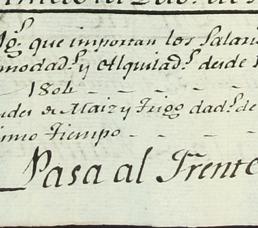 Yg.ˢ que importan los Salari
modad.ˢ y Alquilad.ˢ desde
1804 - - -
de Maiz y Trigo dad.ˢ de
smo Tiempo - - -
Pasa al Frente